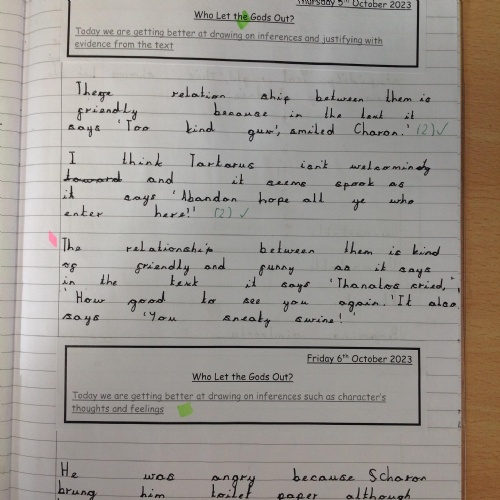 Thursday 5th October 2023
Who Let the Gods Out?
Today we are getting better at drawing on inferences and justifying with
evidence from the text
These relation ship between them is
friendly because in the text it
says 'Too kind guv', smiled Charon.' (2)✓
I think Tartarus isn't welcomindg
toward and it seems spook as
it says 'Abandon hope all ye who
enter here!' (2) ✓
The relationship between them is kind
of friendly and funny as it says
in the text it says 'Thanatos cried,"
'How good to see you again.' It also
says 'You sneaky swine!'
Friday 6th October 2023
Who Let the Gods Out?
Today we are getting better at drawing on inferences such as character's
thoughts and feelings
He was angry because Scharon
brung him toilet paper although